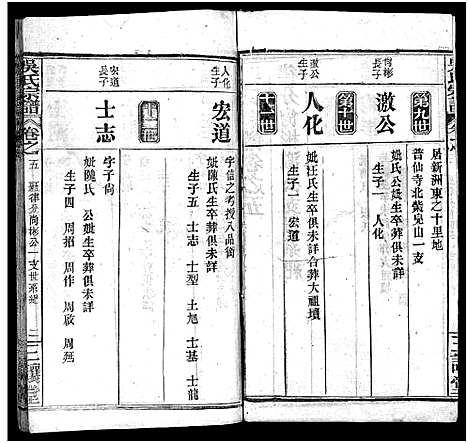 居新洲東之十里地
普仙寺北紫皃山一支
第九世
尚彬公
生子
激公
妣氏公妣生卒葬俱未詳
生子一 人化
第十世
激公
生子
人化
妣汪氏生卒葬俱未詳合葬大祖墳
生子一 宏道
十一世
人化
生子
宏道
字信之考授八品銜
妣陳氏生卒葬俱未詳
生子五 士志 士型 士旭 士基 士龍
十二世
宏道
長子
士志
字子尚
妣陳氏 公妣生卒葬俱未詳
生子四 周招 周作 周啟 周延
吳氏宗譜
卷之五
尚彬公一支世系